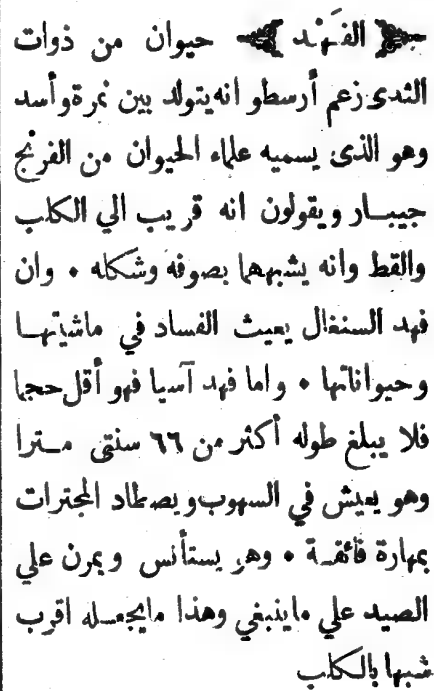 ﴿ الفهد ﴾ حيوان من ذوات
الثدى زعم أرسطو انه يتولد بين نمرة وأسد
وهو الذى يسميه علماء الحيوان من الفرنج
جيبار ويقولون انه قريب الي الكلب
والقط وانه يشبههما بصوفه وشكله . وان
فهد السنغال يعيث الفساد في ماشيتها
وحيواناتها . واما فهد آسيا فهو أقل حجما
فلا يبلغ طوله أكثر من ٦٦ سنتى مترا
وهو يعيش في السهوب ويصطاد المجترات
بمهارة فائقة . وهو يستأنس ويمرن علي
الصيد علي ماينبغي وهذا مايجعله اقرب
شبها بالكلب